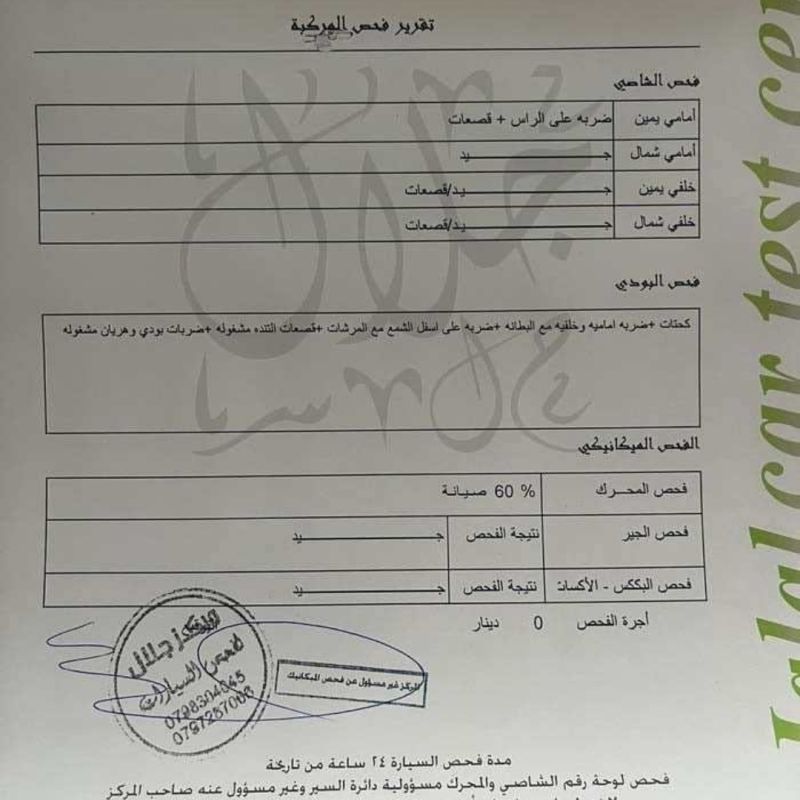 تقرير فحص المركبة
فحص الشاصي
أمامي يمين ضربه على الراس + قصعات
أمامي شمال جـــــــيد
خلفي يمين جـــــــيد/قصعات
خلفي شمال جـــــــيد/قصعات
فحص البودي
كحتات +ضربه اماميه وخلفيه مع البطانه +ضربه على اسفل الشمع مع المرشات +قصعات التنده مشغوله +ضربات بودي وهريان مشغوله
الفحص الميكانيكي
فحص المحـــرك 60 % صيـانـة
فحص الجير نتيجة الفحص جـــــــيد
فحص البككس - الأكسات نتيجة الفحص جـــــــيد
أجرة الفحص 0 دينار
مركز جلال
لفحص السيارات
0798304045
المركز غير مسؤول عن فحص الميكانيك
مدة فحص السيارة ٢٤ ساعة من تاريخة
فحص لوحة رقم الشاصي والمحرك مسؤولية دائرة السير وغير مسؤول عنه صاحب المركز
جلال
Jalal car test cen